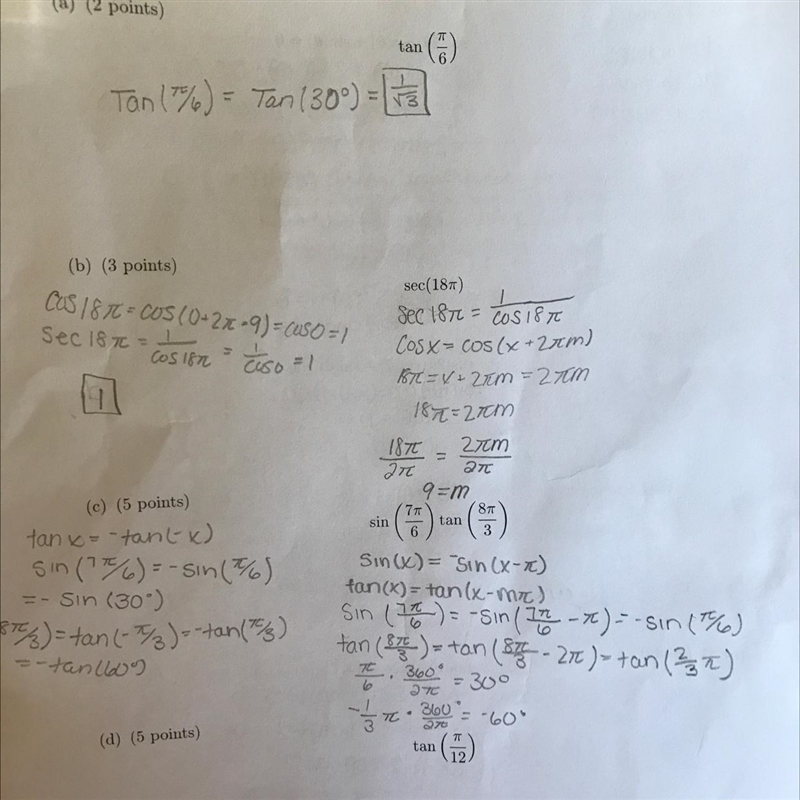 (a) (2 points)
tan(π/6)
Tan(π/6) = Tan(30°) = 1/√3
(b) (3 points)
sec(18π)
cos 18π = cos(0+2π·9) = cos0 = 1
sec 18π = 1/cos 18π = 1/cos0 = 1
1
sec 18π = 1/cos 18π
cos x = cos(x + 2πm)
18π = x + 2πm = 2πm
18π = 2πm
18π/2π = 2πm/2π
9 = m
(c) (5 points)
sin(7π/6) tan(8π/3)
tan x = -tan(-x)
sin(7π/6) = -sin(π/6)
= - sin(30°)
8π/3) = tan(-π/3) = -tan(π/3)
= -tan(60°)
sin(x) = -sin(x-π)
tan(x) = tan(x-mπ)
sin(7π/6) = -sin(7π/6 - π) = -sin(π/6)
tan(8π/3) = tan(8π/3 - 2π) = tan(2/3 π)
π/6 · 360°/2π = 30°
-1/3 π · 360°/2π = -60°
(d) (5 points)
tan(π/12)